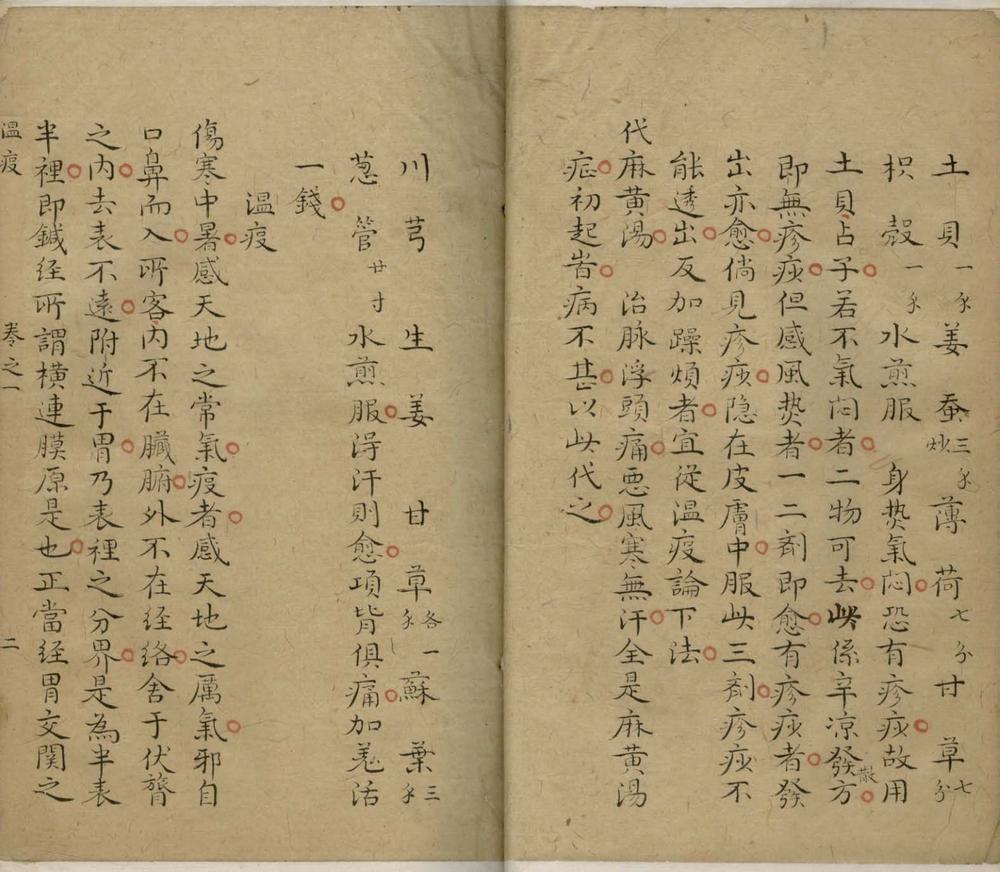 土貝一錢姜蚕炒三錢薄荷七分甘草七分
枳殼一錢水煎服　身热氣闷恐有疹痧故用
土貝占子若不氣闷者二物可去此係辛凉發散方
即無疹痧但感風热者一二劑即愈有疹痧者發
出亦愈倘見疹痧隐在皮膚中服此三劑疹痧不
能透出反加躁煩者宜従温疫論下法
代麻黄湯　治脉浮頭痛悪風寒無汗全是麻黄湯
症初起者病不甚以此代之
川芎　生姜　甘草各一錢蘇葉三錢
葱管廿寸水煎服淂汗則愈項背俱痛加羌活
一錢
温疫
傷寒中暑感天地之常氣疫者感天地之厲氣邪自
口鼻而入所客内不在臓腑外不在经络舍于伏膂
之内去表不遠附近于胃乃表裡之分界是為半表
半裡即鍼经所謂横連膜原是也正當经胃交関之
温疫　卷之一　二